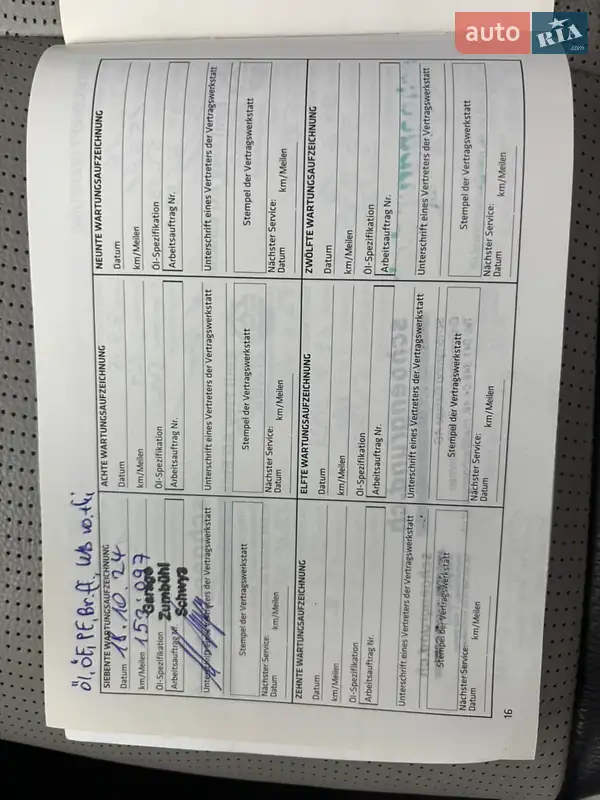 auto RIA .com
Öl, ÖF, PF, Br.fl,
SIEBENTE WARTUNGSAUFZEICHNUNG
Datum 18.10.24
km/Meilen 153 097
Öl-Spezifikation
Garage
Zumbühl
Schwyz
Arbeitsauftrag Nr.
Unterschrift eines Vertreters der Vertragswerkstatt
Stempel der Vertragswerkstatt
Nächster Service:
Datum km/Meilen
ACHTE WARTUNGSAUFZEICHNUNG
Datum
km/Meilen
Öl-Spezifikation
Arbeitsauftrag Nr.
Unterschrift eines Vertreters der Vertragswerkstatt
Stempel der Vertragswerkstatt
Nächster Service:
Datum km/Meilen
NEUNTE WARTUNGSAUFZEICHNUNG
Datum
km/Meilen
Öl-Spezifikation
Arbeitsauftrag Nr.
Unterschrift eines Vertreters der Vertragswerkstatt
Stempel der Vertragswerkstatt
Nächster Service:
Datum km/Meilen
ZEHNTE WARTUNGSAUFZEICHNUNG
Datum
km/Meilen
Öl-Spezifikation
Arbeitsauftrag Nr.
Unterschrift eines Vertreters der Vertragswerkstatt
Stempel der Vertragswerkstatt
Nächster Service:
Datum km/Meilen
ELFTE WARTUNGSAUFZEICHNUNG
Datum
km/Meilen
Öl-Spezifikation
Arbeitsauftrag Nr.
Unterschrift eines Vertreters der Vertragswerkstatt
Stempel der Vertragswerkstatt
Nächster Service:
Datum km/Meilen
ZWÖLFTE WARTUNGSAUFZEICHNUNG
Datum
km/Meilen
Öl-Spezifikation
Arbeitsauftrag Nr.
Unterschrift eines Vertreters der Vertragswerkstatt
Stempel der Vertragswerkstatt
Nächster Service:
Datum km/Meilen
16